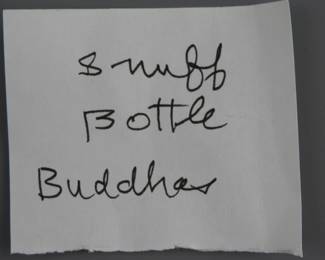 Snuff
Bottle
Buddhas